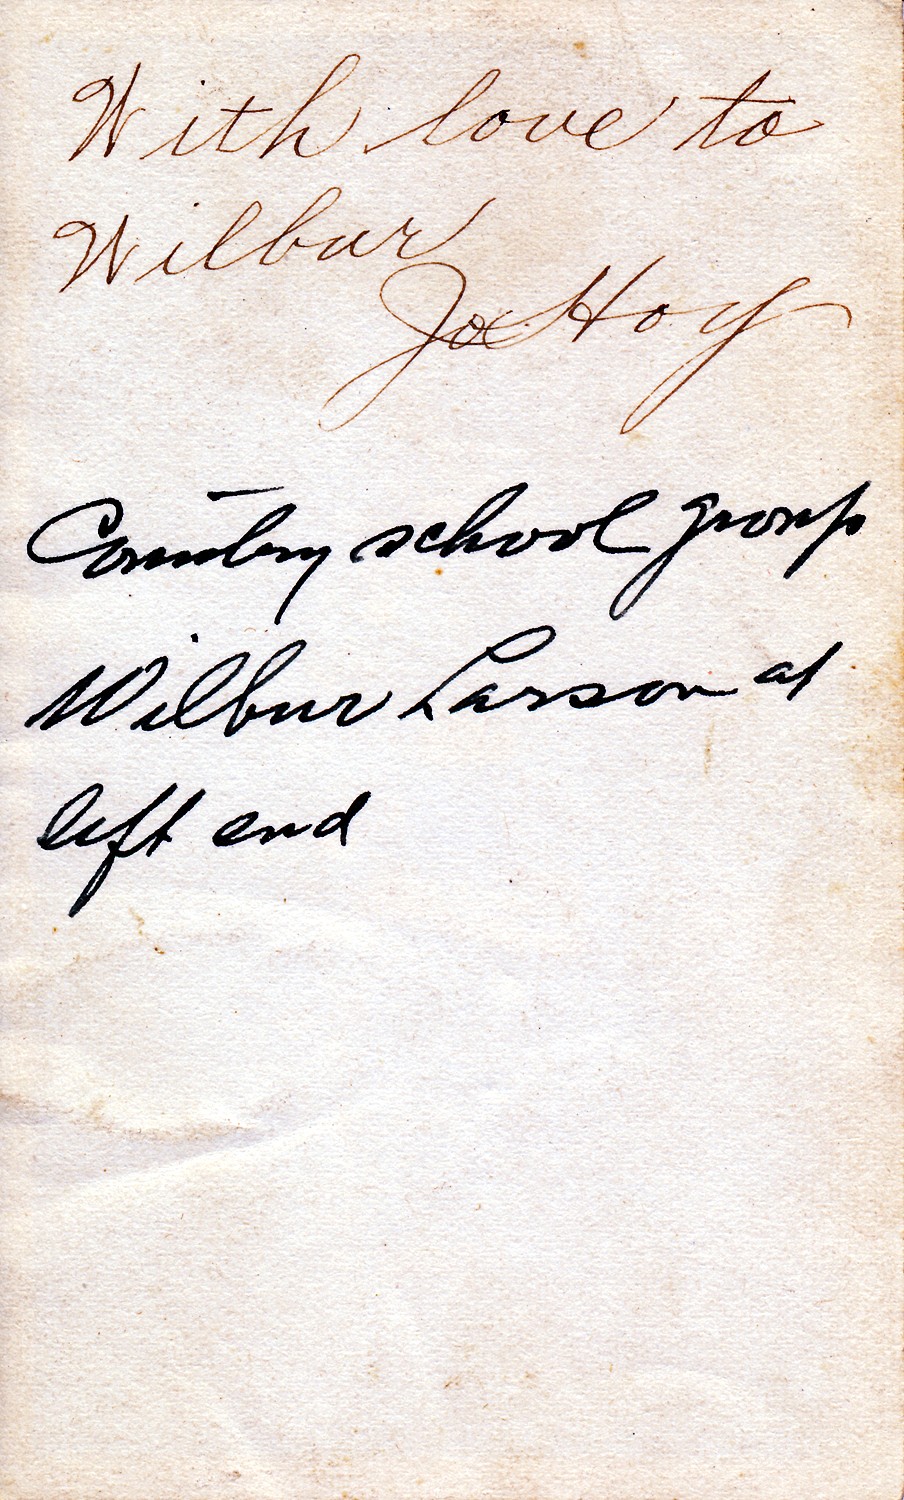 With love to
Wilbur
Joe Hoy
Country school group
Wilbur Larson at
left end